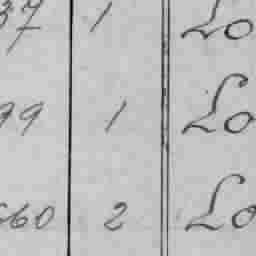 37 1 Lo
99 1 Lo
660 2 Lo